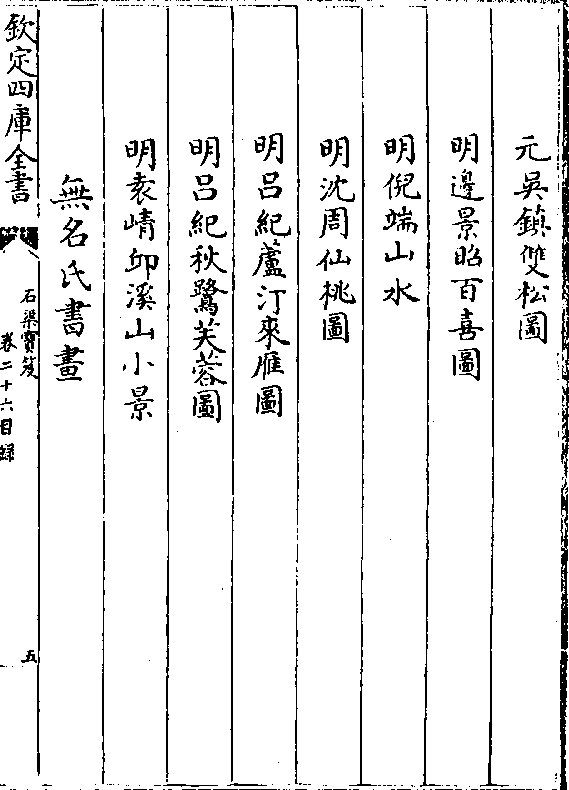 元吳鎮雙松圖
明邊景昭百喜圖
明倪端山水
明沈周仙桃圖
明呂紀蘆汀來雁圖
明呂紀秋鷺芙蓉圖
明袁崝邱溪山小景
無名氏書畫
欽定四庫全書
石渠寶笈
卷二十六目録
五